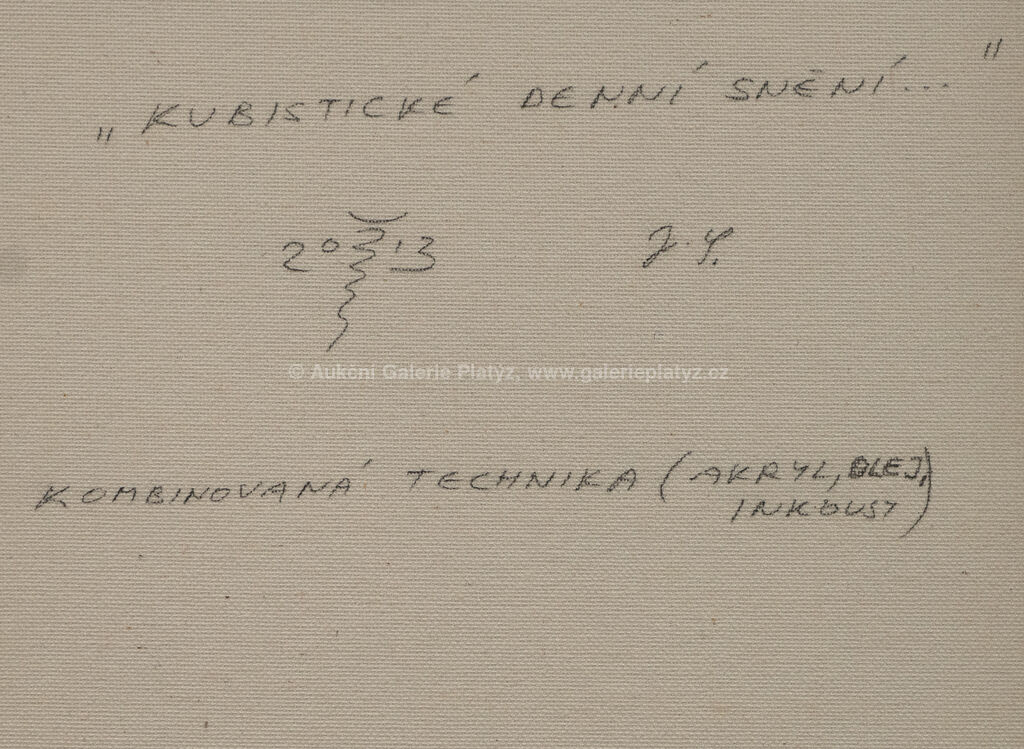 „KUBISTICKÉ DENNÍ SNĚNÍ..."
2013 J.Y.
© Aukční Galerie Platýz, www.galerieplatyz.cz
KOMBINOVANÁ TECHNIKA (AKRYL, OLEJ,
INKOUST)